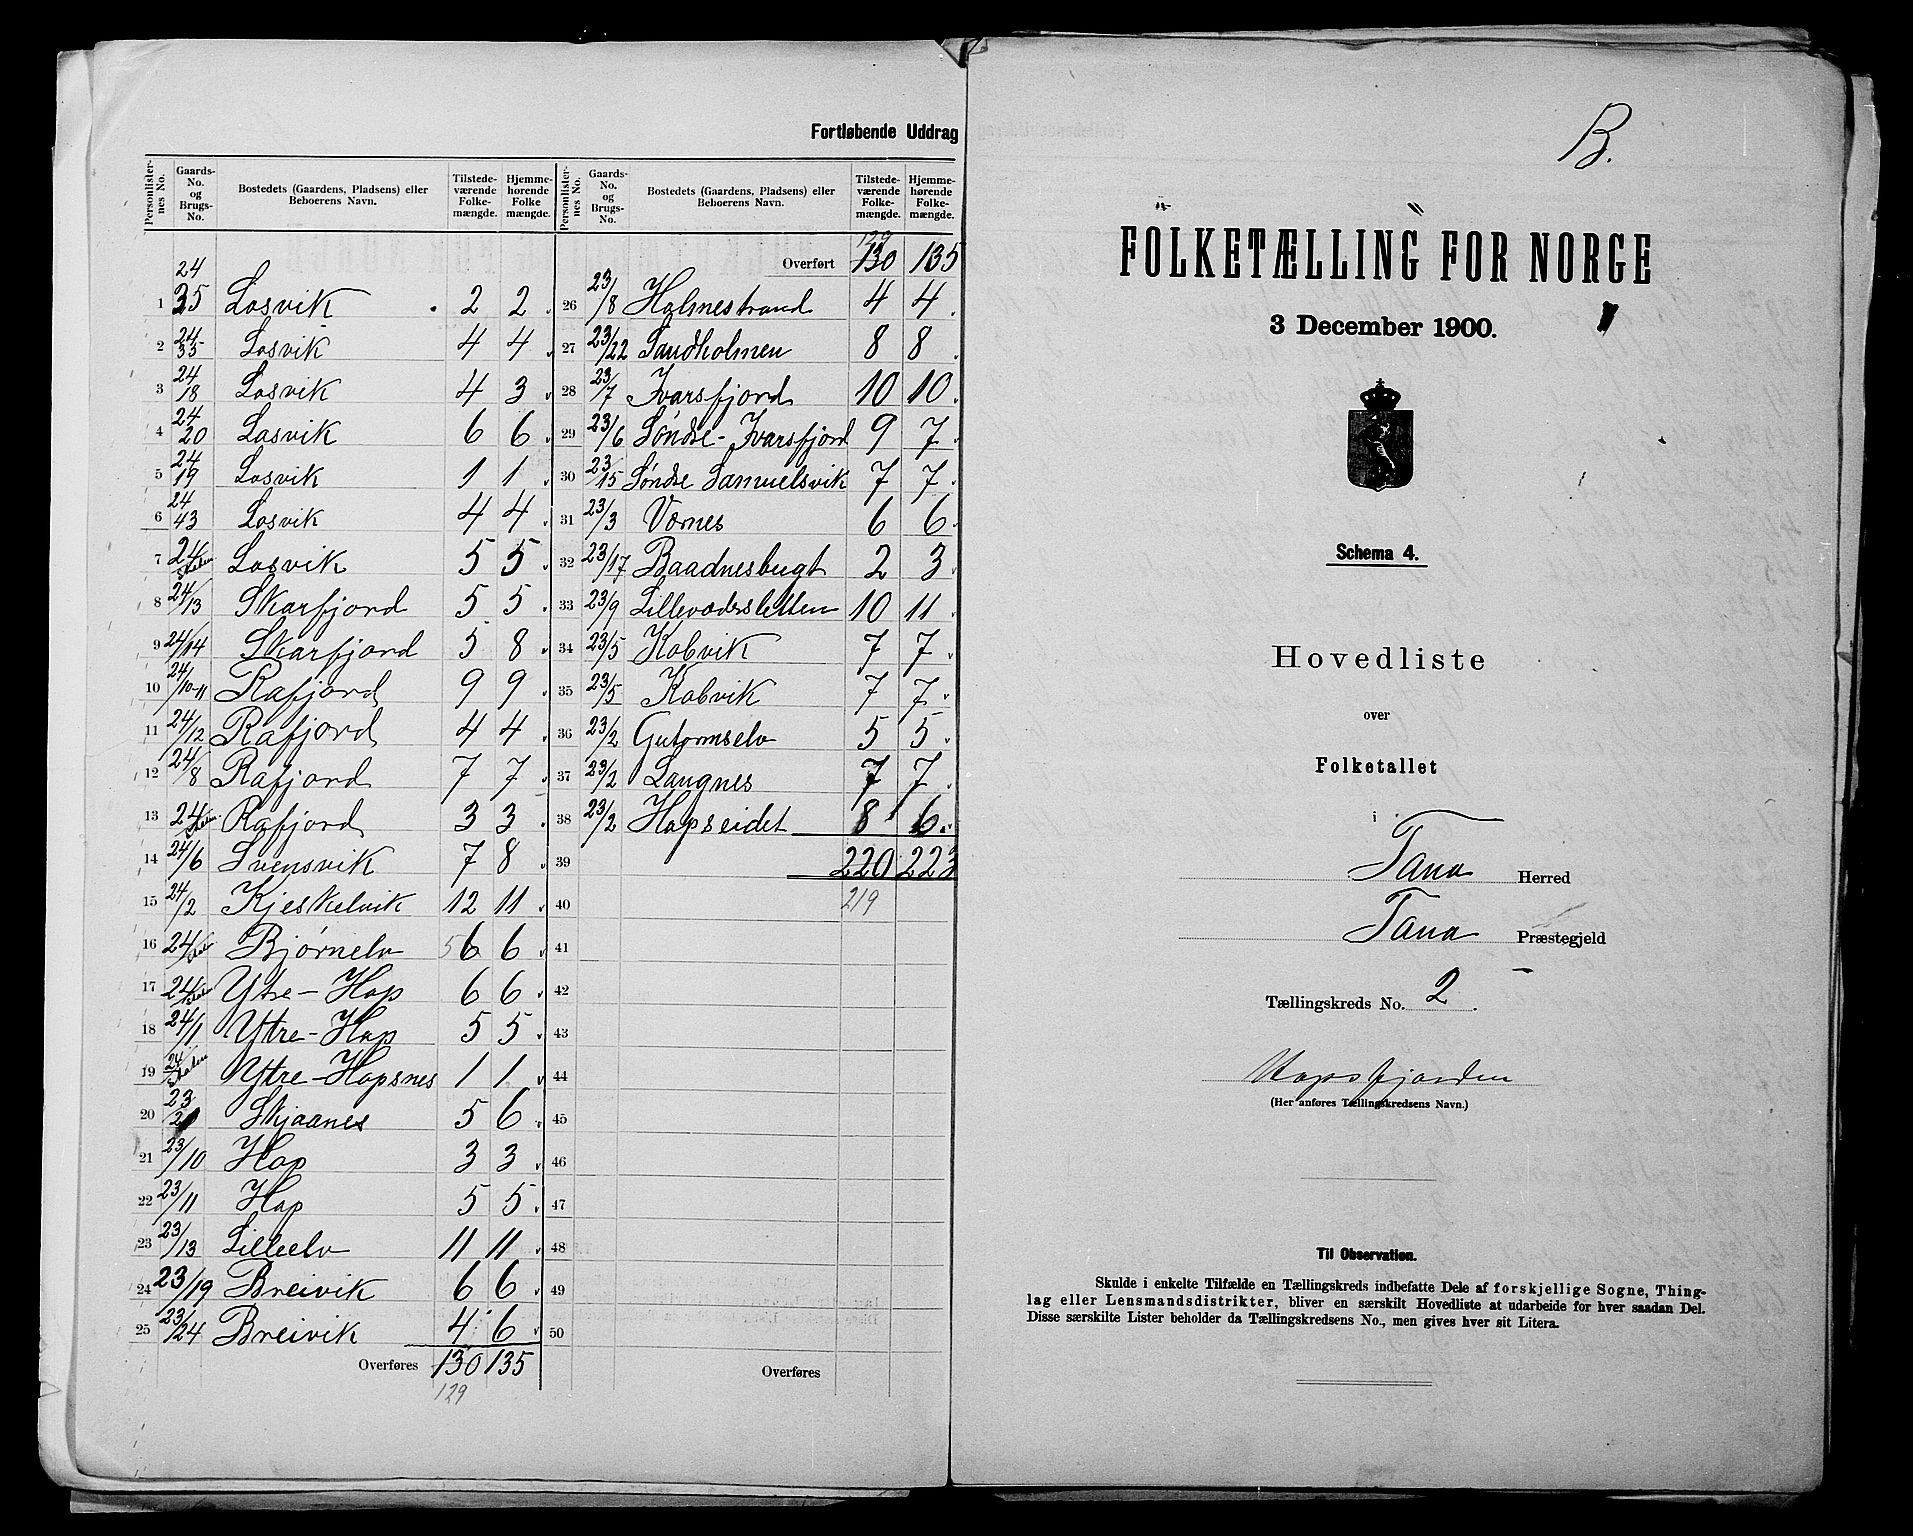 Fortløbende Uddrag
Personlister-nes No. Gaards-No. og Brugs-No. Bostedets (Gaardens, Pladsens) eller Beboerens Navn. Tilstede-værende Folke-mængde. Hjemme-hørende Folke mængde. Personlister-nes No. Gaards-No. og Brugs-No. Bostedets (Gaardens, Pladsens) eller Beboerens Navn. Tilstede-værende Folke-mængde. Hjemme-hørende Folke-mængde.
129
Overført 130 135
1 24/35 Losvik 2 2
2 24/35 Losvik 4 4
3 24/18 Losvik 4 3
4 24/20 Losvik 6 6
5 24/19 Losvik 1 1
6 24/43 Losvik 4 4
7 24/Staten Losvik 5 5
8 24/13 Skarfjord 5 5
9 24/14 Skarfjord 5 8
10 24/10-11 Rafjord 9 9
11 24/12 Rafjord 4 4
12 24/8 Rafjord 7 7
13 24/Staten Rafjord 3 3
14 24/6 Svensvik 7 8
15 24/2 Kjeskelvik 12 11
16 24/Staten Bjørnelv 5 6 6
17 24/Staten Ytre-Hop 6 6
18 24/1 Ytre-Hop 5 5
19 24/Staten Ytre-Hopsnes 1 1
20 23/2 Skjaanes 5 6
21 23/10 Hop 3 3
22 23/11 Hop 5 5
23 23/13 Lilleelv 11 11
24 23/19 Breivik 6 6
25 23/24 Breivik 4 6
Overføres 130 135
129
26 23/8 Holmestrand 4 4
27 23/22 Sandholmen 8 8
28 23/7 Ivarsfjord 10 10
29 23/6 Søndre-Ivarsfjord 9 7
30 23/15 Søndre Samuelsvik 7 7
31 23/3 Vornes 6 6
32 23/17 Baadnesbugt 2 3
33 23/9 Lillevodersletten 10 11
34 23/5 Kobvik 7 7
35 23/5 Kobvik 7 7
36 23/2 Gutormselv 5 5
37 23/2 Langnes 7 7
38 23/2 Hopseidet 8 6
39 220 223
40 219
41
42
43
44
45
46
47
48
49
50
Overføres
B.
FOLKETÆLLING FOR NORGE
3 December 1900.
Schema 4.
Hovedliste
over
Folketallet
i
Tana Herred
Tana Præstegjeld
Tællingskreds No. 2.
Hopsfjorden
(Her anføres Tællingskredsens Navn.)
Til Observation.
Skulde i enkelte Tilfælde en Tællingskreds indbefatte Dele af forskjellige Sogne, Thing-
lag eller Lensmandsdistrikter, bliver en særskilt Hovedliste at udarbeide for hver saadan Del.
Disse særskilte Lister beholder da Tællingskredsens No., men gives hver sit Litera.